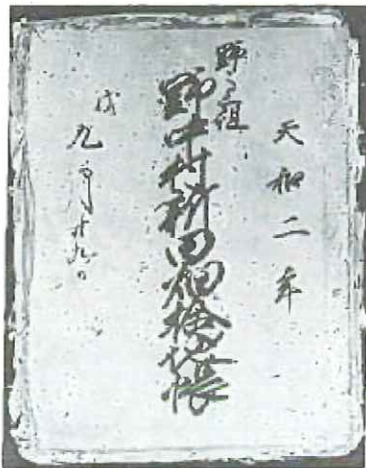 天和二年
野々組
野中村新田畑検地帳
戌
九月廿九日